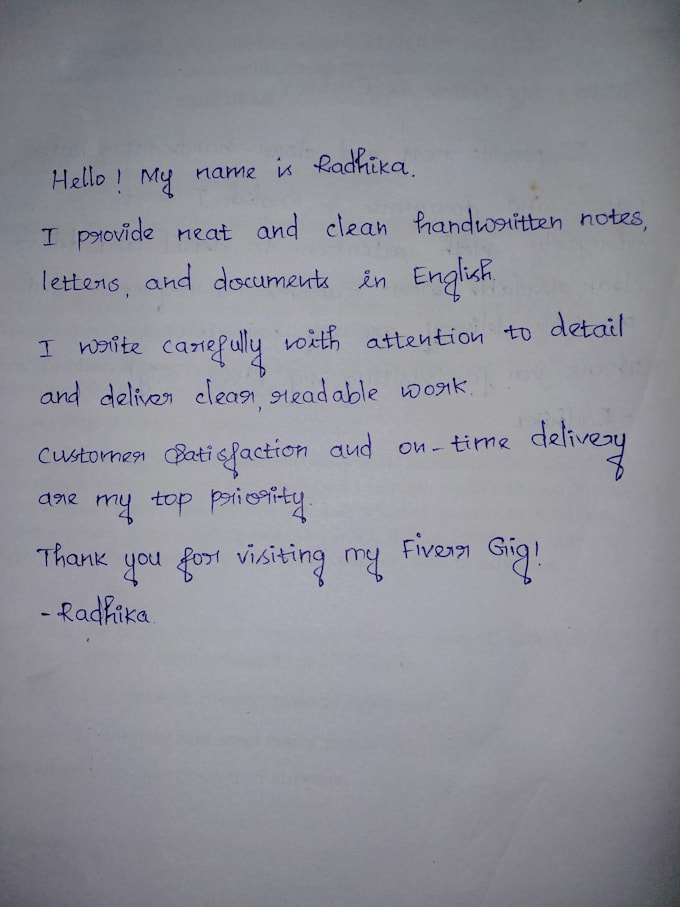 Hello! My name is Radhika.
I provide neat and clean handwritten notes,
letters, and documents in English.
I write carefully with attention to detail
and deliver clear, readable work.
Customer Satisfaction and on-time delivery
are my top priority.
Thank you for visiting my Fiverr Gig!
-Radhika.